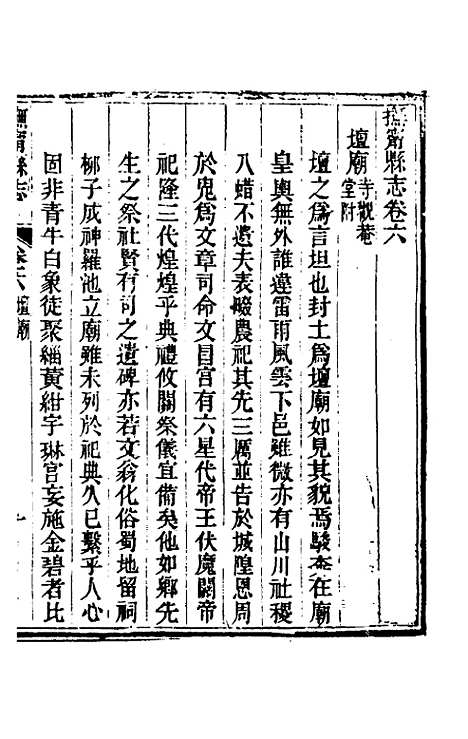 撫甯縣志卷六
壇廟寺觀菴堂附
壇之為言坦也封土為壇廟如見其貌焉駿奔在廟
皇輿無外誰違雷雨風雲下邑雖微亦有山川社稷
八蜡不遺夫表畷農祀其先三厲並告於城隍恩周
於鬼為文章司命文昌宮有六星代帝王伏魔關帝
祀隆三代煌煌乎典禮攸關祭儀宜備矣他如鄉先
生之祭社賢有司之遺碑亦若文翁化俗蜀地留祠
柳子成神羅池立廟雖未列於祀典久已繫乎人心
固非青牛白象徒聚緇黃紺宇琳宮妄施金碧者比
撫甯縣志
卷六 壇廟
一